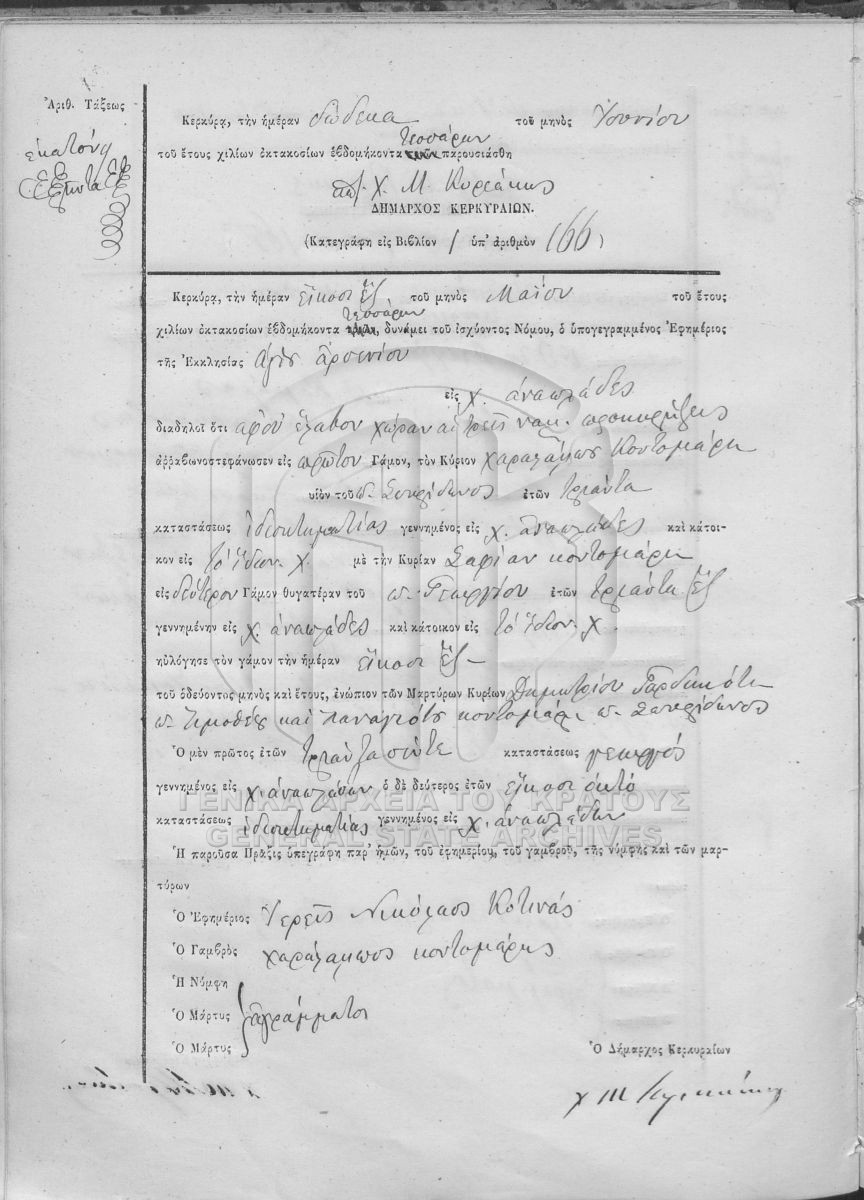 Ἀριθ. Τάξεως
ἑκατὸν
ἑξήντα ἓξ
Κερκύρᾳ, τὴν ἡμέραν δώδεκα τοῦ μηνὸς Ἰουνίου
τεσσάρων
τοῦ ἔτους χιλίων ὀκτακοσίων ἑβδομήκοντα παρουσιάσθη
Χ. Μ. Κυριάκης
ΔΗΜΑΡΧΟΣ ΚΕΡΚΥΡΑΙΩΝ.
(Κατεγράφη εἰς Βιβλίον 1 ὑπ' ἀριθμὸν 166)
Κερκύρᾳ, τὴν ἡμέραν εἴκοσι ἓξ τοῦ μηνὸς Μαΐου τοῦ ἔτους
τεσσάρων
χιλίων ὀκτακοσίων ἑβδομήκοντα , δυνάμει τοῦ ἰσχύοντος Νόμου, ὁ ὑπογεγραμμένος Ἐφημέριος
τῆς Ἐκκλησίας ἁγίου Ἀρσενίου
εἰς χ. ἀναπλάδες
διαδηλοῖ ὅτι ἀφοῦ ἔλαβον χώραν αἱ τρεῖς νομ. προκηρύξεις
ἀῤῥαβωνοστεφάνωσεν εἰς πρῶτον Γάμον, τὸν Κύριον χαράλαμπος Κοντομάρη
υἱὸν τοῦ π. Σπυρίδωνος ἐτῶν τριάντα
καταστάσεως ἰδιοκτηματίας γεννημένος εἰς χ. ἀναπλάδες καὶ κάτοι-
κον εἰς τὸ ἴδιον χ. μὲ τὴν Κυρίαν Σοφίαν κοντομάρη
εἰς δεύτερον Γάμον θυγατέραν τοῦ π. Γεωργίου ἐτῶν τριάντα ἓξ
γεννημένην εἰς χ. ἀναπλάδες καὶ κάτοικον εἰς τὸ ἴδιον χ.
ηὐλόγησε τὸν γάμον τὴν ἡμέραν εἴκοσι ἓξ
τοῦ ὁδεύοντος μηνὸς καὶ ἔτους, ἐνώπιον τῶν Μαρτύρων Κυρίων Δημητρίου Γαρδικιότη
π. Τιμοθέου καὶ Παναγιότου κοντομάρη π. Σπυρίδωνος
Ὁ μὲν πρῶτος ἐτῶν τριάντα πέντε καταστάσεως γεωργός
γεννημένος εἰς χ. ἀναπλάδων ὁ δὲ δεύτερος ἐτῶν εἴκοσι ὀκτὸ
καταστάσεως ἰδιοκτηματίας γεννημένος εἰς χ. ἀναπλάδων
ΓΕΝΙΚΑ ΑΡΧΕΙΑ ΤΟΥ ΚΡΑΤΟΥΣ
GENERAL STATE ARCHIVES
Ἡ παροῦσα Πρᾶξις ὑπεγράφη παρ' ἡμῶν, τοῦ ἐφημερίου, τοῦ γαμβροῦ, τῆς νύμφης καὶ τῶν μαρ-
τύρων
Ὁ Ἐφημέριος Ἱερεὺς Νικόλαος Κοτινάς
Ὁ Γαμβρὸς χαράλαμπος κοντομάρης
Ἡ Νύμφη
Ὁ Μάρτυς ἀγράμματοι
Ὁ Μάρτυς
Ὁ Δήμαρχος Κερκυραίων
Χ Μ Κυριάκης